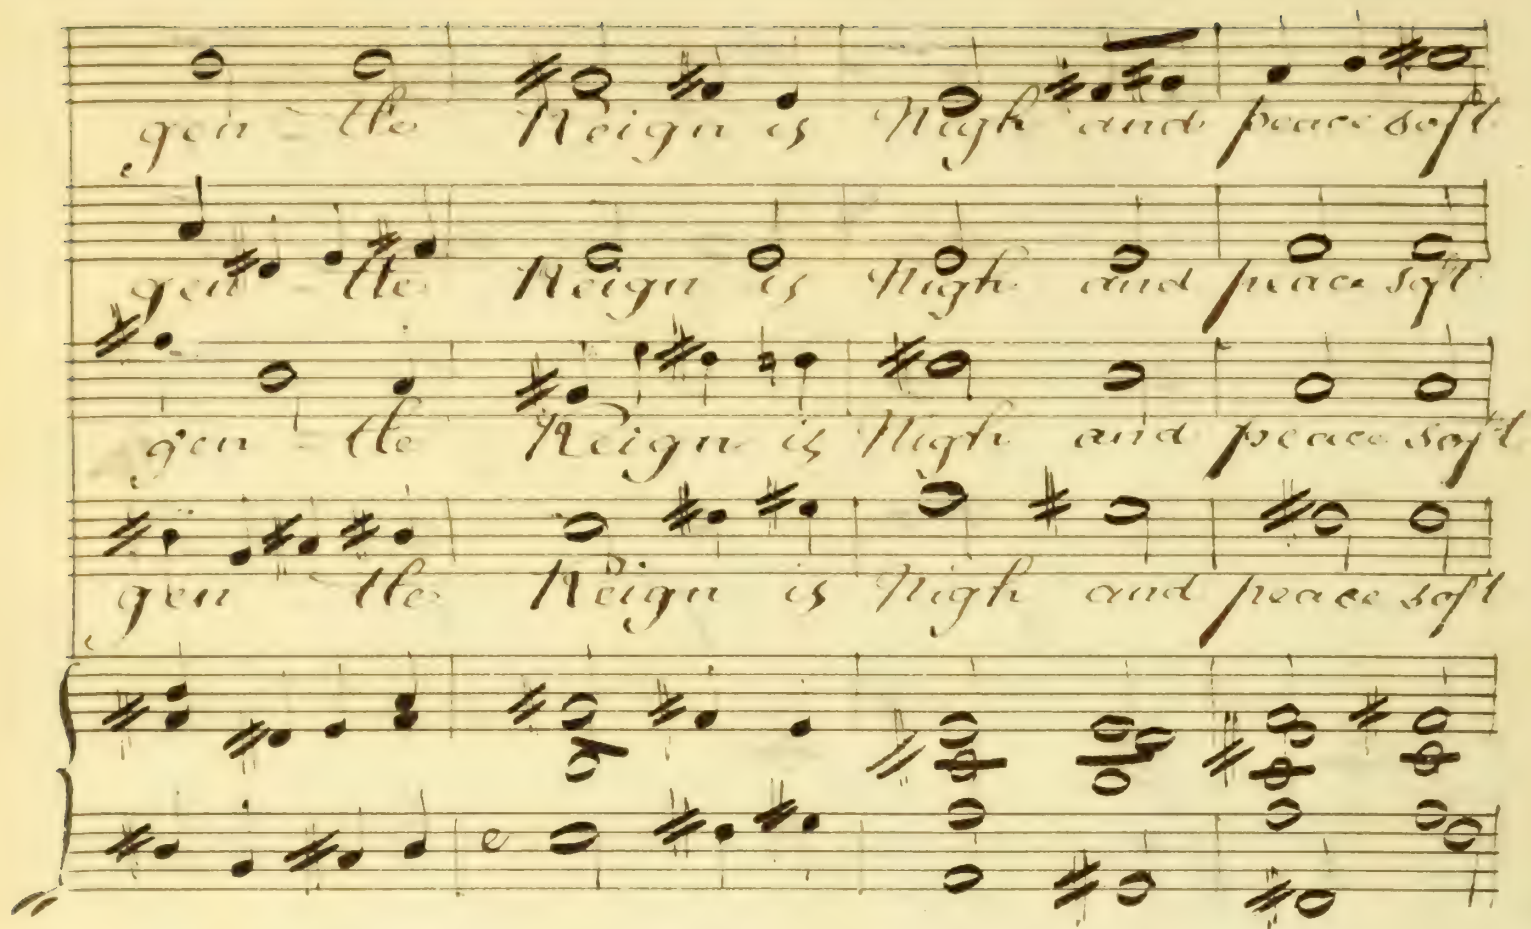 gen - tle Reign is Nigh and peace soft
gen - tle Reign is Nigh and peace soft
gen - tle Reign is Nigh and peace soft
gen - tle Reign is Nigh and peace soft